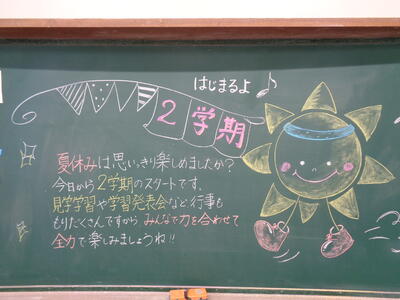 はじまるよ♪
2学期
夏休みは思いっきり楽しめましたか?
今日から2学期のスタートです。
見学学習や学習発表会など行事も
もりだくさんですから みんなで力を合わせて
全力で楽しみましょうね!!